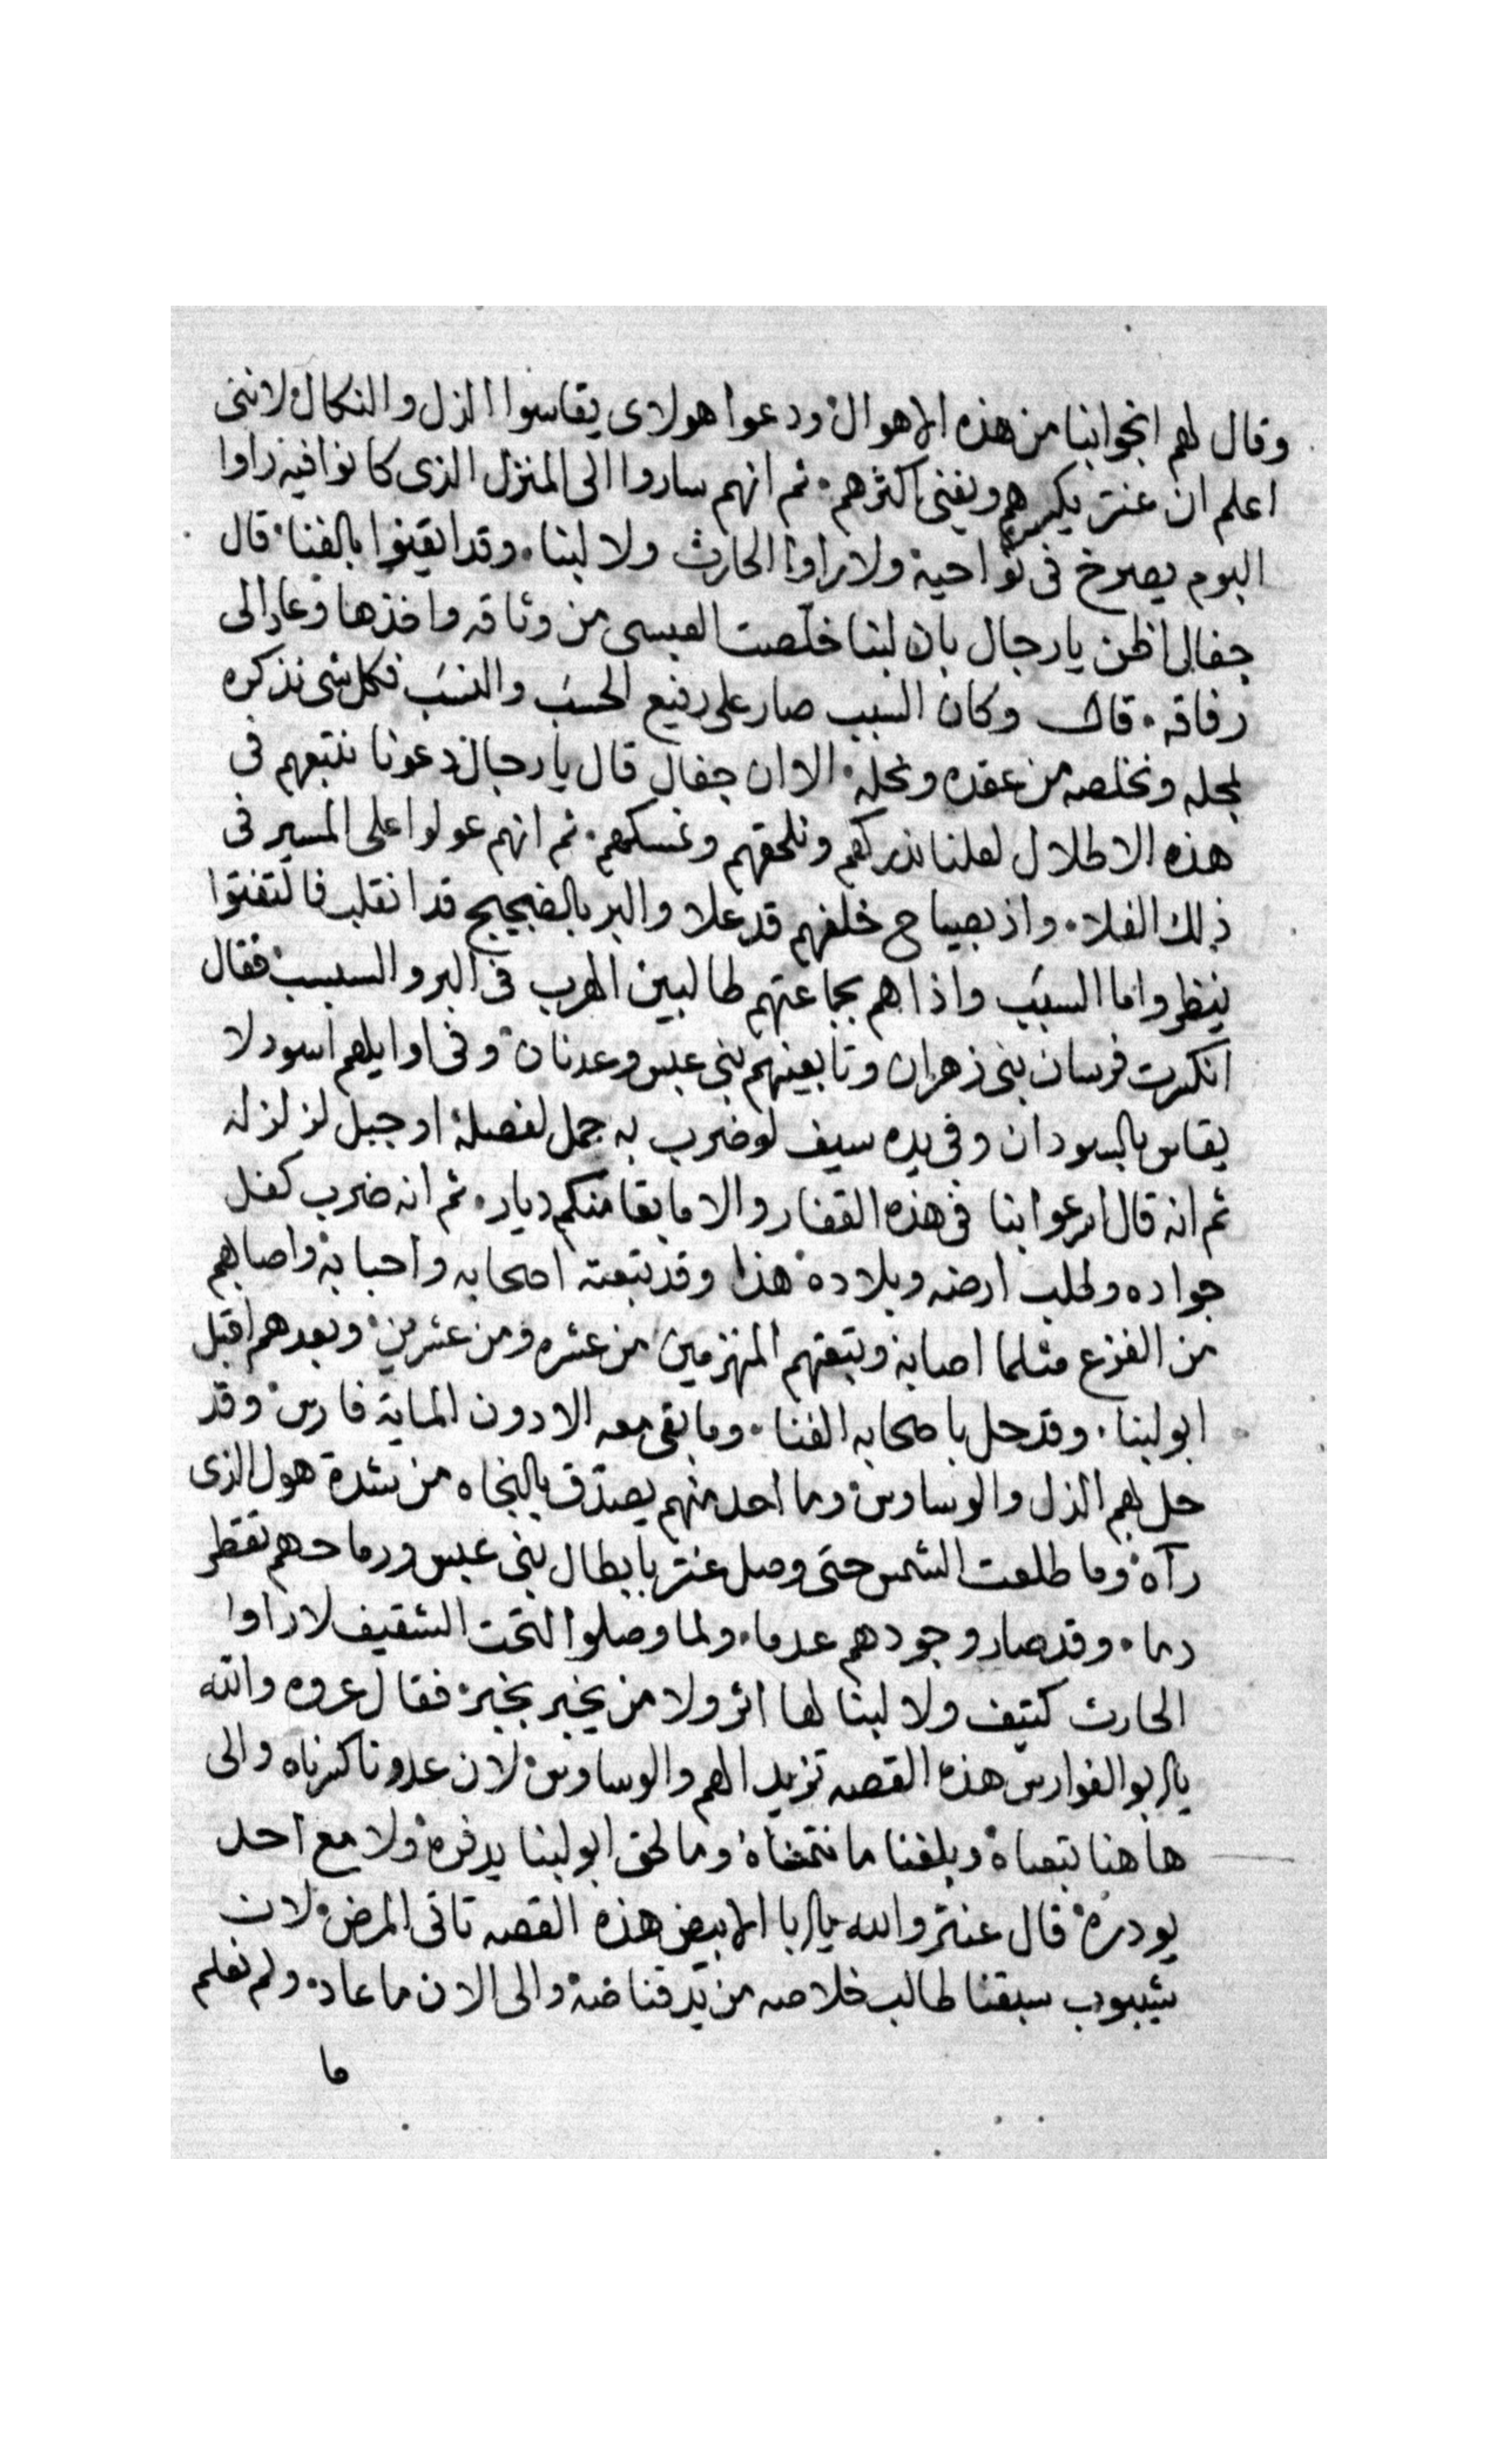 وقال لهم انجوا بنا من هذه الاهوال ودعوا هولاى يقاسوا الزل والنكال لاننى
اعلم ان عنتر يكسرهم ويفنى اكثرهم. ثم انهم ساروا الى المنزل الذى كانوا فيه راوا
البوم يصرخ فى نواحيه ولا راوا الحارث ولا لبنا. وقد ايقنوا بالفنا. قال
جفال اظن يا رجال بان لبنا خلّصت العبسى من وثاقه واخذها وعاد الى
رفاقه. قال وكان السبب صار على رفيع الحسب والنسب فكل شى نذكره
لمحله ونخلصه من عقده ونحله. الا ان جفال قال يا رجال دعونا نتبعهم فى
هذه الاطلال لعلنا ندركهم ونلحقهم ونمسكهم. ثم انهم عولوا على المسير فى
ذلك الفلا. واذ بصياح خلفهم قد علا والبر بالضجيج قد انقلب فالتفتوا
ينظروا ما السبب واذا هم بجماعتهم طالبين الهرب فى البر والسبسب فقال
انكسرت فرسان بنى زهران وتابعينهم بنى عبس وعدنان وفى اوايلهم اسود لا
يقاس بالسودان وفى يده سيف لو ضرب به جمل لفصله او جبل لزلزله
ثم انه قال ارعوا بنا فى هذه القفار والا ما بقا منكم ديار. ثم انه ضرب كفل
جواده وطلب ارضه وبلاده هذا وقد تبعته اصحابه واحبابه واصابهم
من الفزع مثلما اصابه وتبعتهم المنهزمين من عشره ومن عشرين وبعدهم اقبل
ابو لبنا. وقد حل باصحابه الفنا. وما بقى معه الا دون الماية فارس وقد
حل بهم الزل والوساوس وما احد منهم يصدّق بالنجاه من شدة هول الذى
رآه وما طلعت الشمس حتى وصل عنتر بابطال بنى عبس ورماحهم تقطر
دما. وقد صار وجودهم عدما. ولما وصلوا لتحت الشقيف لا راوا
الحارث كتيف ولا لبنا لها اثر ولا من يخبر بخبر فقال عروه والله
يا ابو الفوارس هذه القصه تزيد الهم والوساوس لان عدونا كسرناه والى
هاهنا تبعناه وبلغنا ما نتمناه وما لحق ابو لبنا يدفره ولا مع احد
يودره قال عنتر والله يا ابا الابيض هذه القصه تاتى المرض لان
شيبوب سبقنا طالب خلاصه من يد قناصه والى الان ما عاد. ولم نعلم
ما